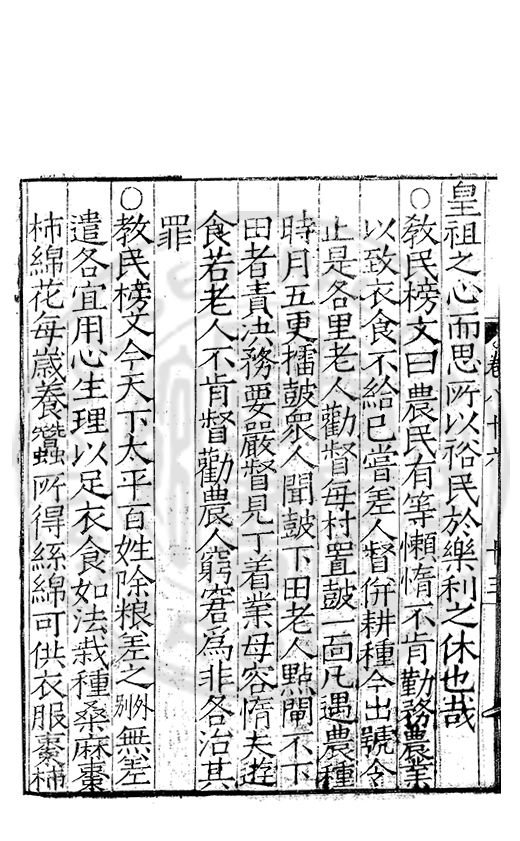 皇祖之心而思所以裕民於樂利之休也哉
○教民榜文曰農民有等懶惰不肯勤務農業
以致衣食不給已嘗差人督併耕種今出號令
止是各里老人勸督每村置鼓一面凡遇農種
時月五更擂鼓衆人聞鼓下田老人點閘不下
田者責决務要嚴督見丁着業毋容惰夫遊
食若老人不肯督勸農人窮窘為非各治其
罪
○教民榜文今天下太平百姓除粮差之外別無差
遣各宜用心生理以足衣食如法栽種桑麻棗
柿綿花每歲養蠶所得絲綿可供衣服棗柿
卷八十六
十三